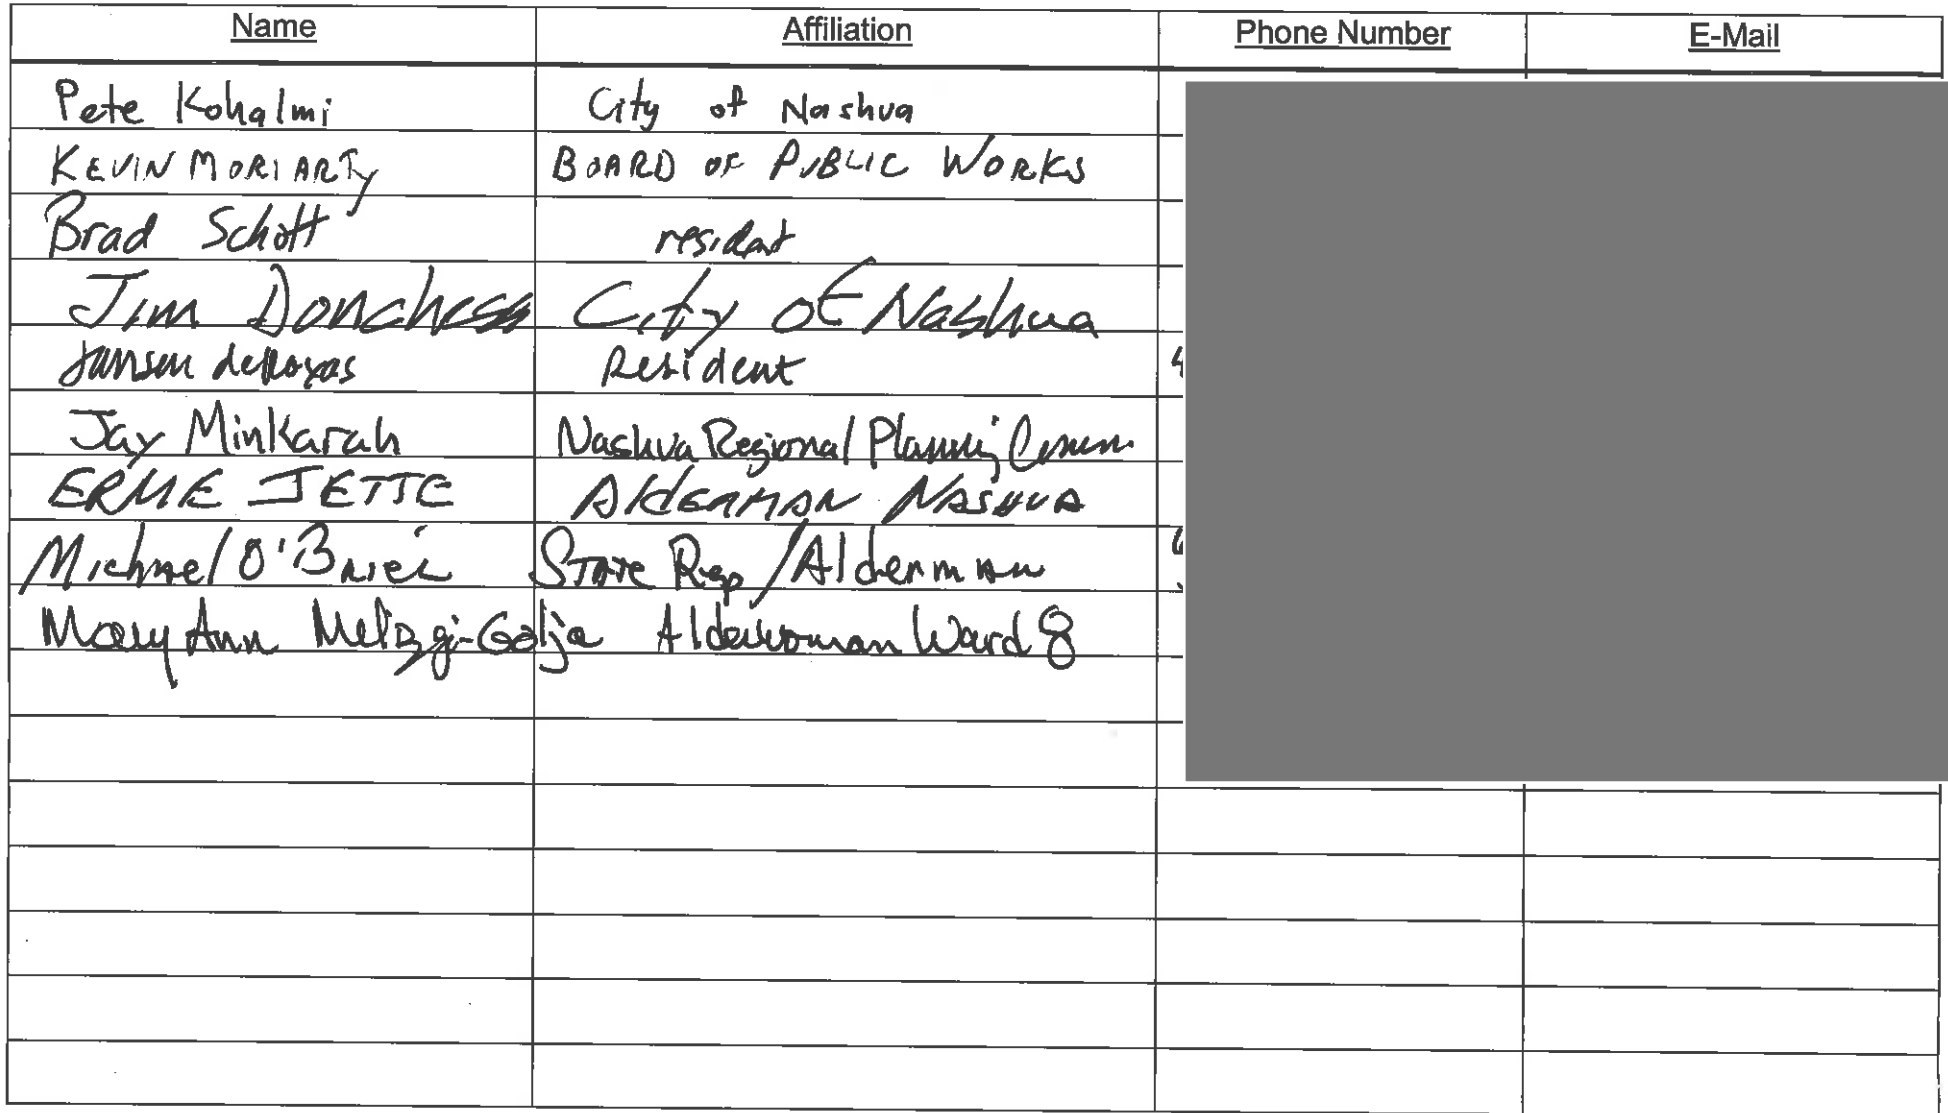 Name Affiliation Phone Number E-Mail
Pete Kohalmi City of Nashua
KEVIN MORIARTY BOARD OF PUBLIC WORKS
Brad Schott resident
Jim Donchess City of Nashua
Jansen deRoxas Resident
Jay Minkarah Nashua Regional Planning Comm
ERNIE JETTE Alderman Nashua
Michael O'Brien State Rep/Alderman
Mary Ann Melizzi-Golja Alderwoman Ward 8